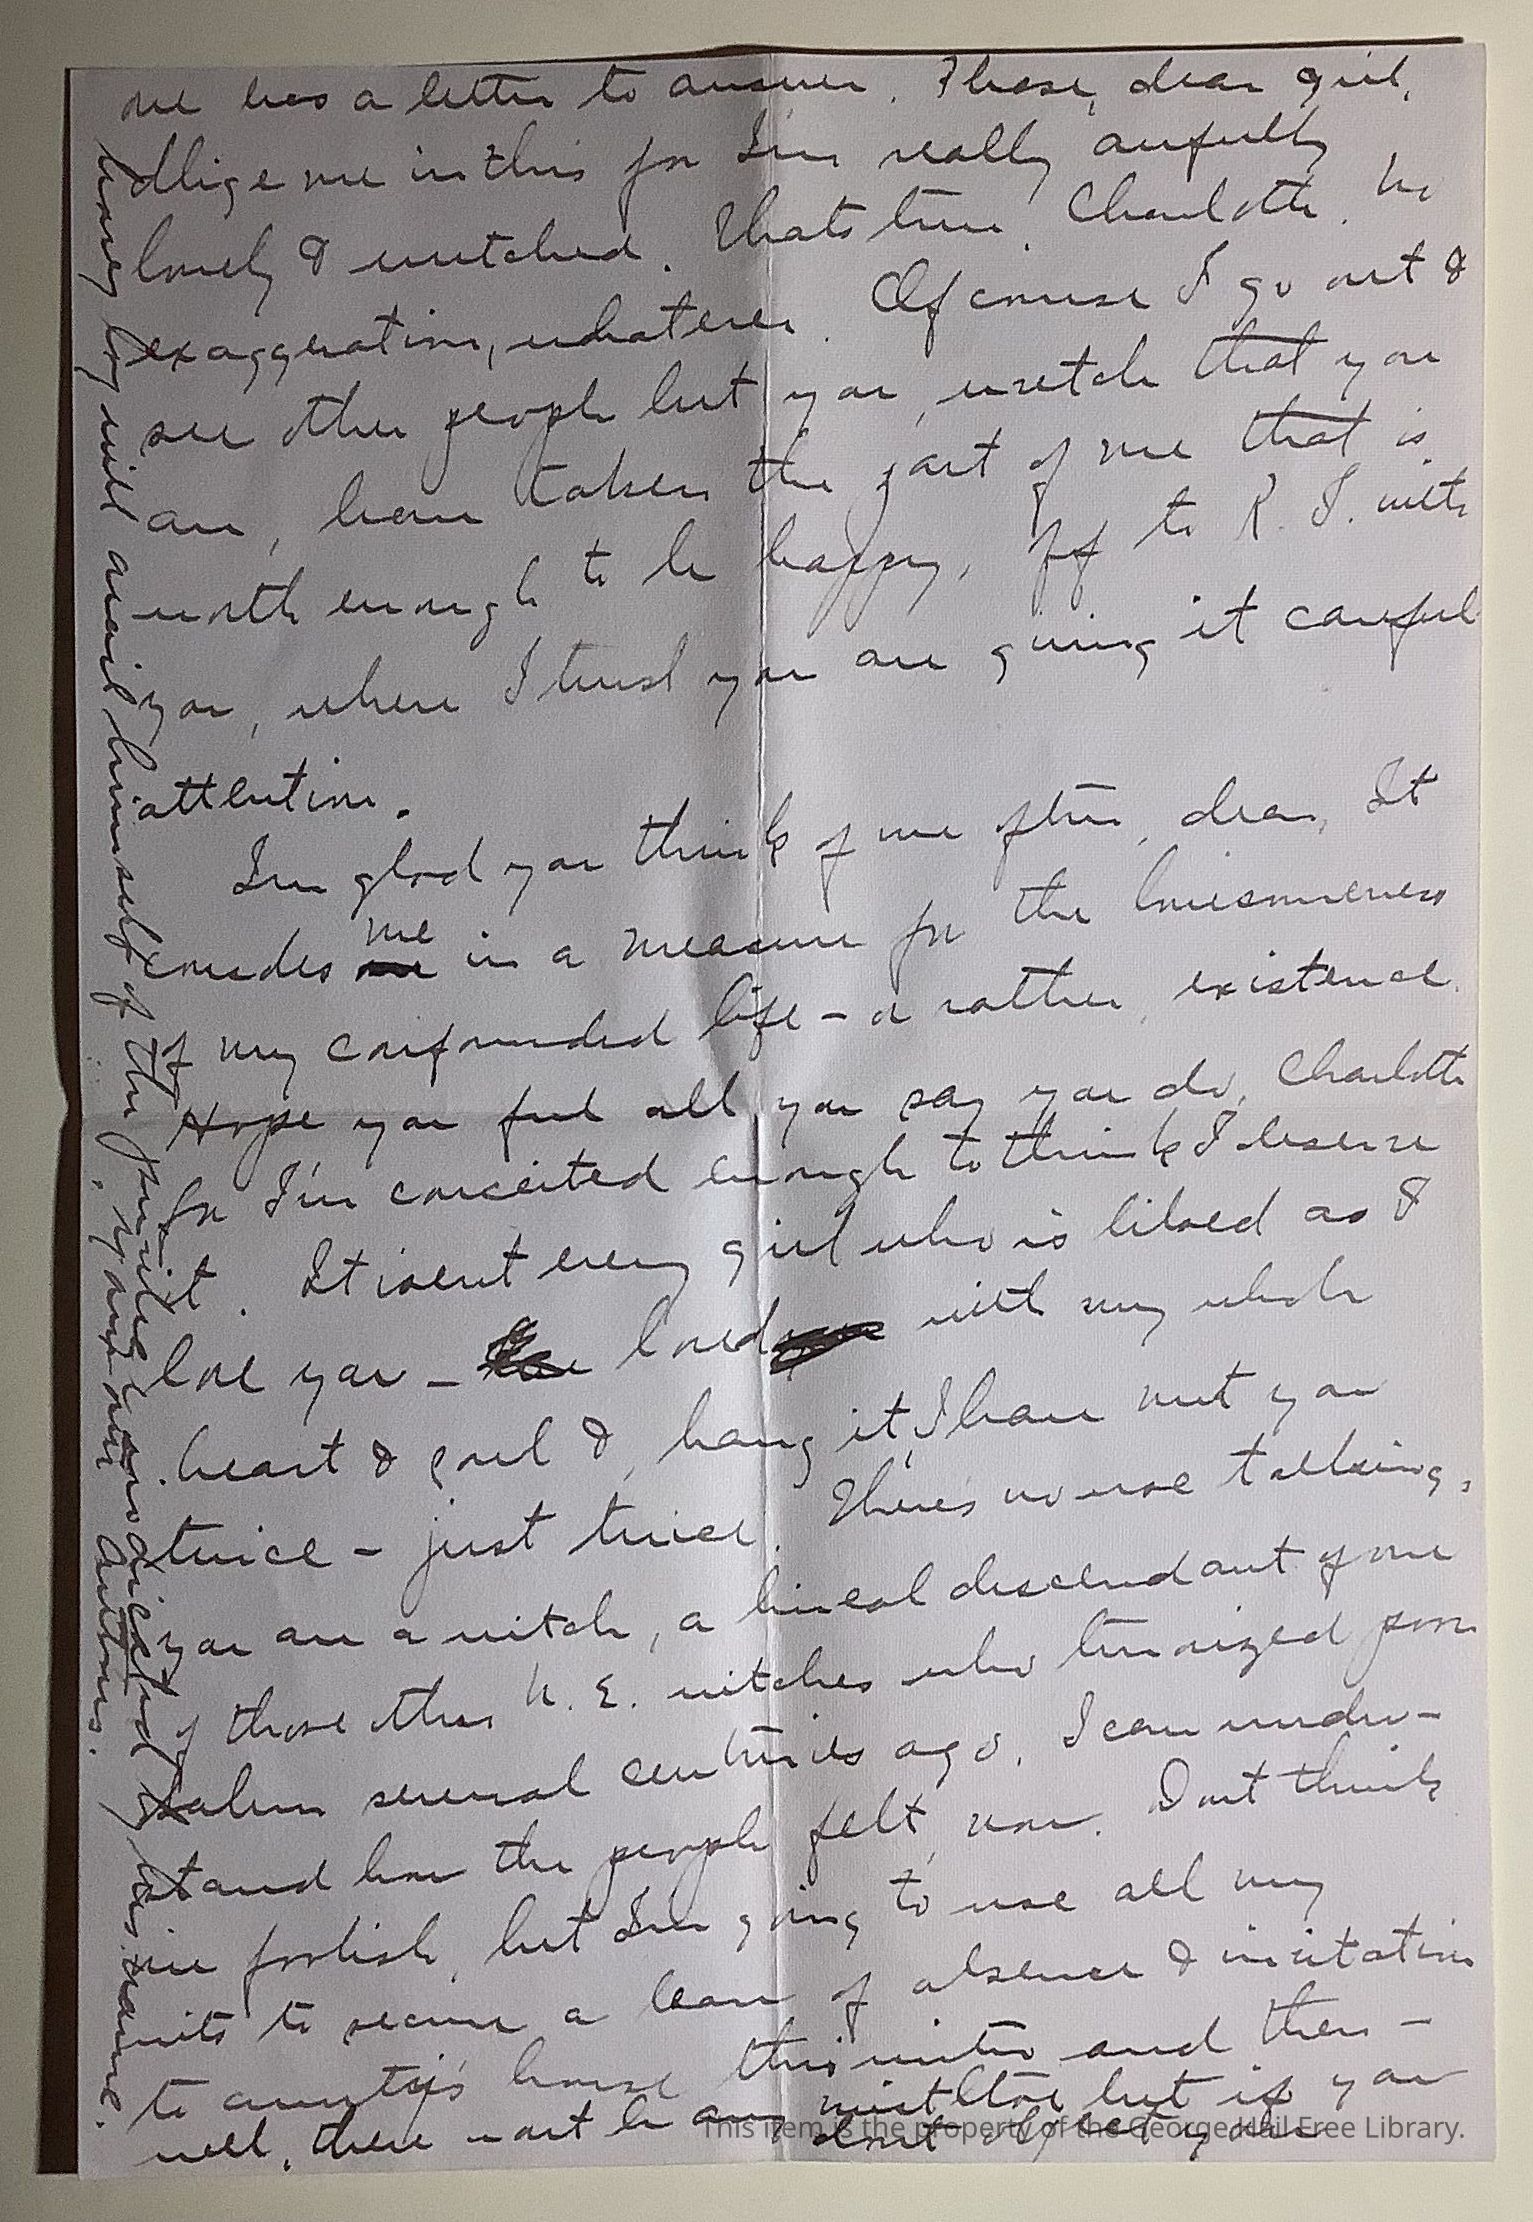 one has a letter to answer. Please, dear girl,
oblige me in this for I'm really awfully
lonely & wretched. Thats true, Charlotte. No
exaggeration, whatever. Of course I go out &
see other people but you, wretch that you
are, have taken the part of me that is
worth enough to be happy, off to R. I. with
you, where I trust you are giving it careful
attention.
I'm glad you think of me often, dear, It
me
consoles me in a measure for the lonesomeness
of my confounded life – or rather, existence.
Hope you feel all you say you do, Charlotte
for I'm conceited enough to think I deserve
it. It isent every girl who is liked as I
love you – loved with my whole
heart & soul &, hang it, I have met you
twice – just twice. There's no use talking,
you are a witch, a lineal descendant of one
of those other N. E. witches who terrorized poor
Salem several centuries ago. I can under-
stand how the people felt, now. Dont think
me foolish, but I'm going to use all my
wits to secure a leave of absence & invitation
to aunty's house this winter and then –
well, there wont be any mistletoe but if you
dont object your
honey boy will avail himself of the privilege indicated by its name.
your own
This item is the property of the George Hail Free Library.